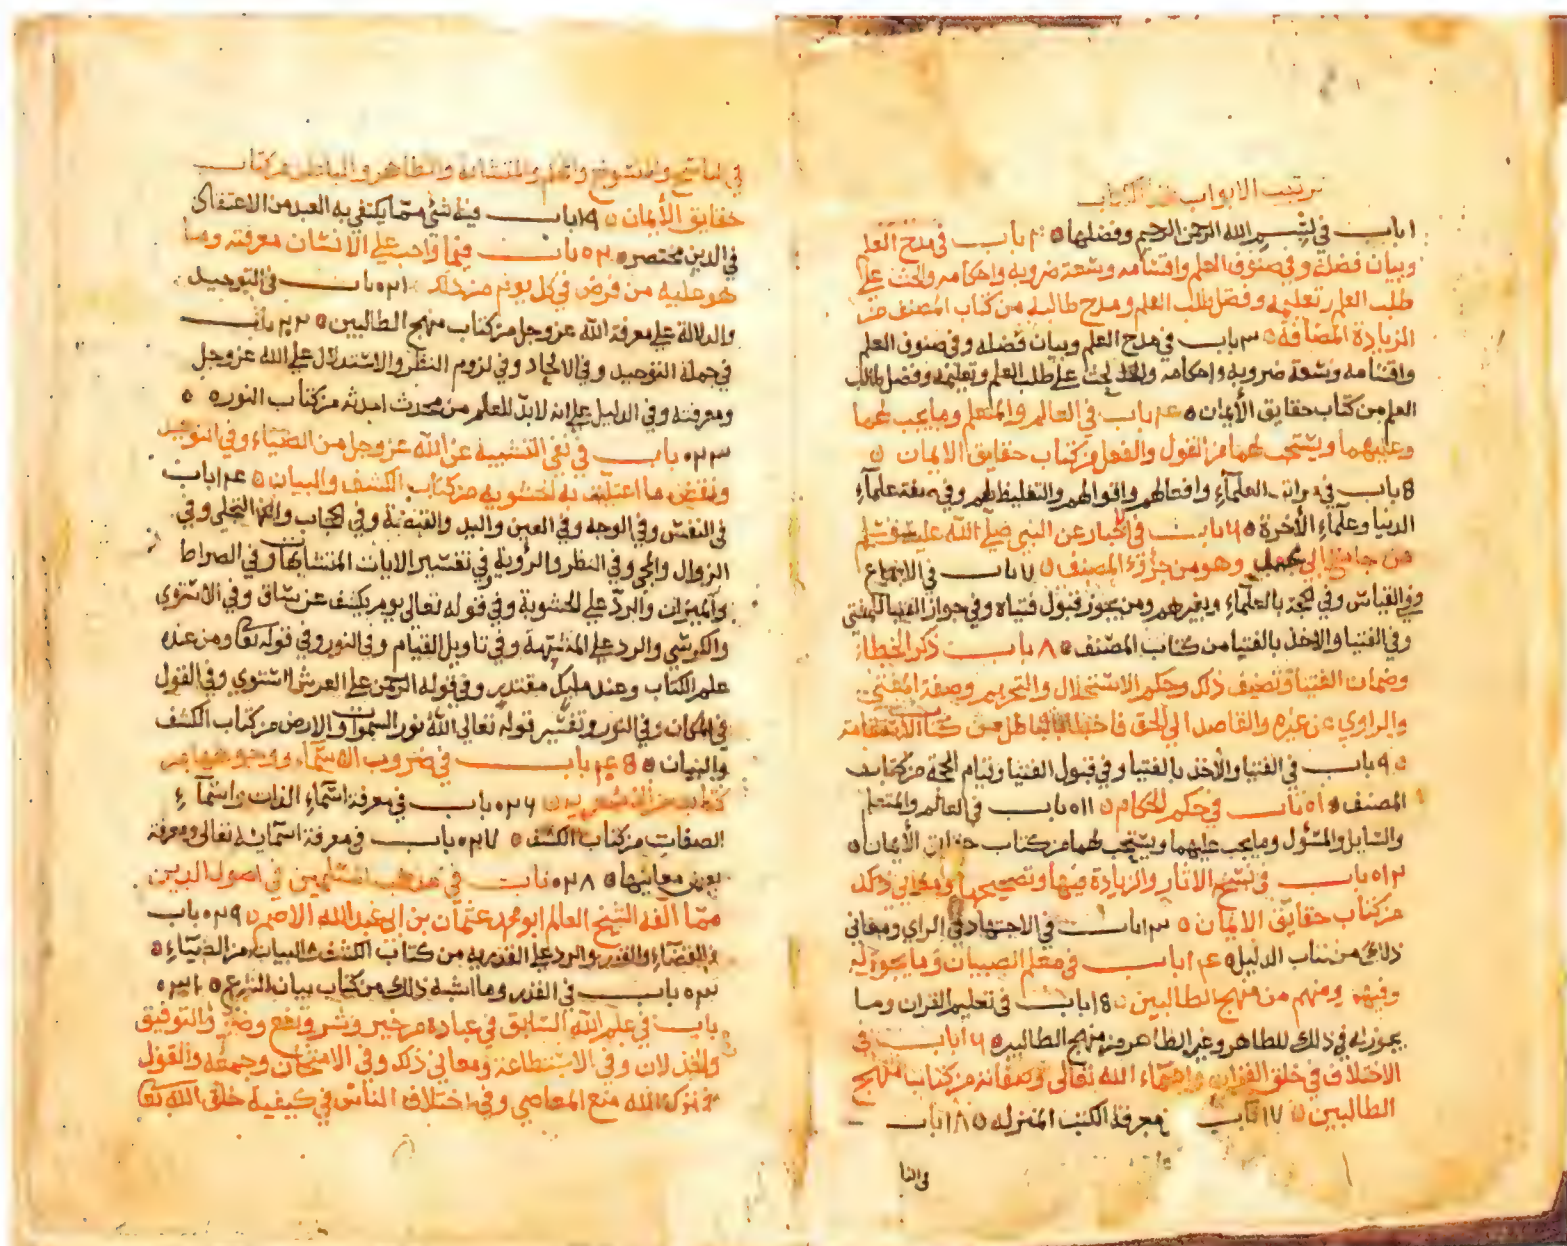 ترتيب الابواب هذا الكتاب
١ باب في بسم الله الرحمن الرحيم وفضلها ٢ باب في مدح العلم
وبيان فضله وفي صنوف العلم واقسامه وسعة ضروبه واحكامه والحث على
طلب العلم وتعليمه وفضل طلب العلم ومدح طالبه من كتاب المصنف من
الزيادة المضافة ٣ باب في مدح العلم وبيان فضله وفي صنوف العلم
واقسامه وسعة ضروبه واحكامه والحث على طلب العلم وتعليمه وفضل طالب
العلم من كتاب حقايق الأيمان ٤ باب في العالم والمتعلم وما يجب لهما
وعليهما ويستحب لهما من القول والفعل من كتاب حقايق الايمان
٥ باب في العلمآء وافعالهم واقوالهم والتغليظ لهم وفي صفة علمآء
الدنيا وعلمآء الأخرة ٦ باب في اخبار عن النبي صلى الله عليه وسلم
وهو من المصنف ٧ باب في الاجماع
وفي القياس وفي الحجة بالعلمآء وبغيرهم ومن يجوز قبول فتياه وفي جواز الفتيا للمفتي
وفي الفتيا والاخذ بالفتيا من كتاب المصنف ٨ باب ذكر الخطاء
وضمان الفتيا وتضيف ذلك وحكم الاستحلال والتحريم وصفة المفتي
والراوي عن غيره والقاصد الى الحق فاخطا بالباطل من كتاب الاستقامة
٩ باب في الفتيا والأخذ بالفتيا وفي قبول الفتيا وقيام الحجة من كتاب
المصنف ١٠ باب في حكم الحكام ١١ باب في العالم والمتعلم
والسايل والمسئول وما يجب عليهما ويستحب لهما من كتاب حقايق الأيمان
١٢ باب في نسخ الاثار والزيادة فيها وتصحيحها ومعاني ذلك
من كتاب حقايق الايمان ١٣ باب في الاجتهاد في الراي ومعاني
ذلك من كتاب الدليل ١٤ باب في معلم الصبيان وما يجوز له
وفيهم ومنهم من منهج الطالبين ١٥ باب في تعليم القران وما
يجوز له في ذلك للطاهر وغير الطاهر من منهج الطالبين ١٦ باب في
الاختلاف في خلق القران واسماء الله تعالى وصفاته من كتاب منهج
الطالبين ١٧ باب في معرفة الكتب المنزله ١٨ باب
في النا
في الناسخ والمنسوخ والمحكم والمتشابه والظاهر والباطن من كتاب
حقايق الأيمان ١٩ باب فيه شئ مما يكتفي به العبد من الاعتقاد
في الدين مختصر ٢٠ باب فيما واجب على الانسان معرفته وما
هو عليه من فرض في كل يوم من ذلك ٢١ باب في التوحيد
والدلالة على معرفة الله عز وجل من كتاب منهج الطالبين ٢٢ باب
في جملة التوحيد وفي الالحاد وفي لزوم النظر والاستدلال على الله عز وجل
ومعرفته وفي الدليل على انه لابد للعالم من محدث احدثه من كتاب النور
٢٣ باب في نفي التشبيه عن الله عز وجل من الضياء وفي التوحيد
ونقض ما اعتلت به الحشويه من كتاب الكشف والبيان ٢٤ باب
في النفس وفي الوجه وفي العين واليد والقبضة وفي الحجاب وفي التجلي وفي
الزوال والمجي وفي النظر والرؤية في تفسير الايات المتشابهات وفي الصراط
والميزان والرد على الحشوية وفي قوله تعالى يوم يكشف عن ساق وفي الاستوي
والكرسي والرد على المشبهة وفي تاويل القيام وفي النور وفي قوله تعا ومن عنده
علم الكتاب وعند مليك مقتدر وفي قوله الرحمن على العرش استوي وفي القول
في المكان وفي النور وتفسير قوله تعالى الله نور السموات والارض من كتاب الكشف
والبيان ٢٥ باب في ضروب الاسماء ووجوهها من
كتاب ٢٦ باب في معرفة اسمآء الذات واسمآء
الصفات من كتاب الكشف ٢٧ باب في معرفة اسمآئه تعالى ومعرفة
بعض معانيها ٢٨ باب في مذهب المسلمين في اصول الدين
مما الفه الشيخ العالم ابو محمد عثمان بن ابي عبد الله الاصم ٢٩ باب
في القضآء والقدر والرد على القدريه من كتاب الكشف والبيان من الضيآء
٣٠ باب في القدر وما اشبه ذلك من كتاب بيان الشرع ٣١
باب في علم الله السابق في عباده من خير وشر ونفع وضر والتوفيق
والخذلان وفي الاستطاعة ومعاني ذلك وفي الامتحان وجمعه والقول
في ترك الله منع المعاصي وفي اختلاف الناس في كيفية خلق الله تعا